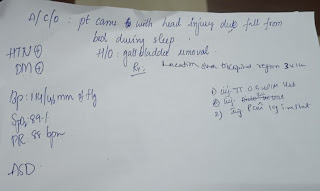 A/C/O : pt came with head injury due fall from
bed during sleep.
HTN ⊕
H/O: gall bladder removal.
DM ⊕
Rx:
Location
region
BP: 114/ mm of Hg
SpO₂: 89%
PR 88 bpm
1) inj. TT 0.5 ml IM stat
2) inj.
3) inj. 1g iv stat
ASD